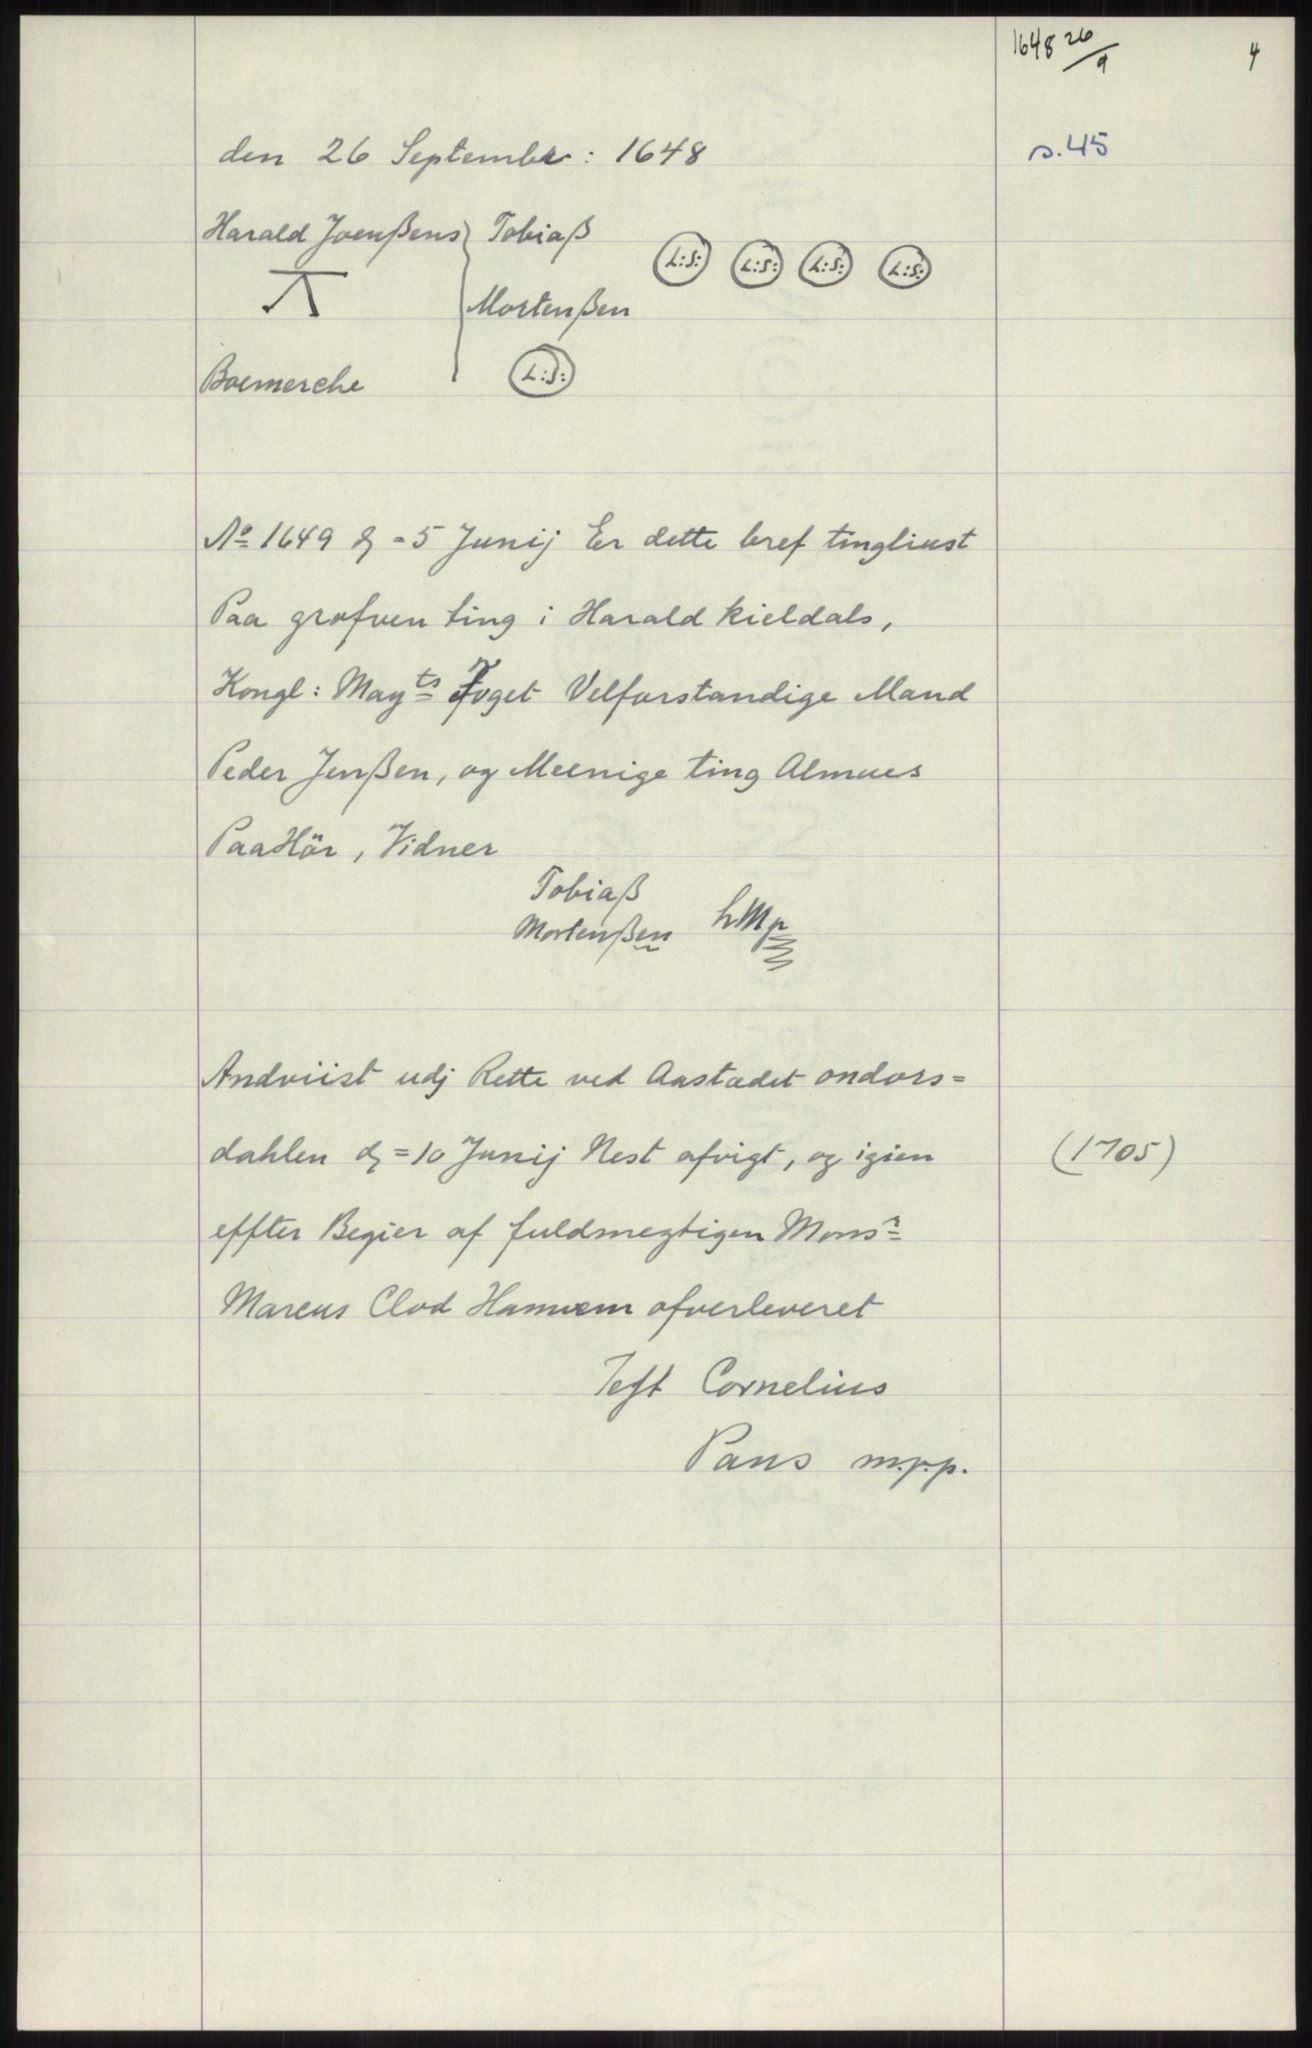 1648 26/9
4
den 26 Septembr: 1648
s. 45
Harald Joenßens Tobiaß
L:S: L:S: L:S: L:S:
Mortenßen
Boemerche L:S:
No 1649 d -5 Junij Er dette bref tingliust
Paa grafven ting i Harald kieldals,
Kongl: Mayts Foget Velforstandige Mand
Peder Jenßen, og Meenige ting Almues
PaaHör, Vidner
Tobiaß
Mortenßen hMp
Andviist udj Rette ved Aastædet ondars=
dahlen d = 10 Junij Nest afvigt, og igien
(1705)
effter Begier af fuldmegtigen Monsr
Marcus Clod afverleveret
Test Cornelius
Pans m.p.p.